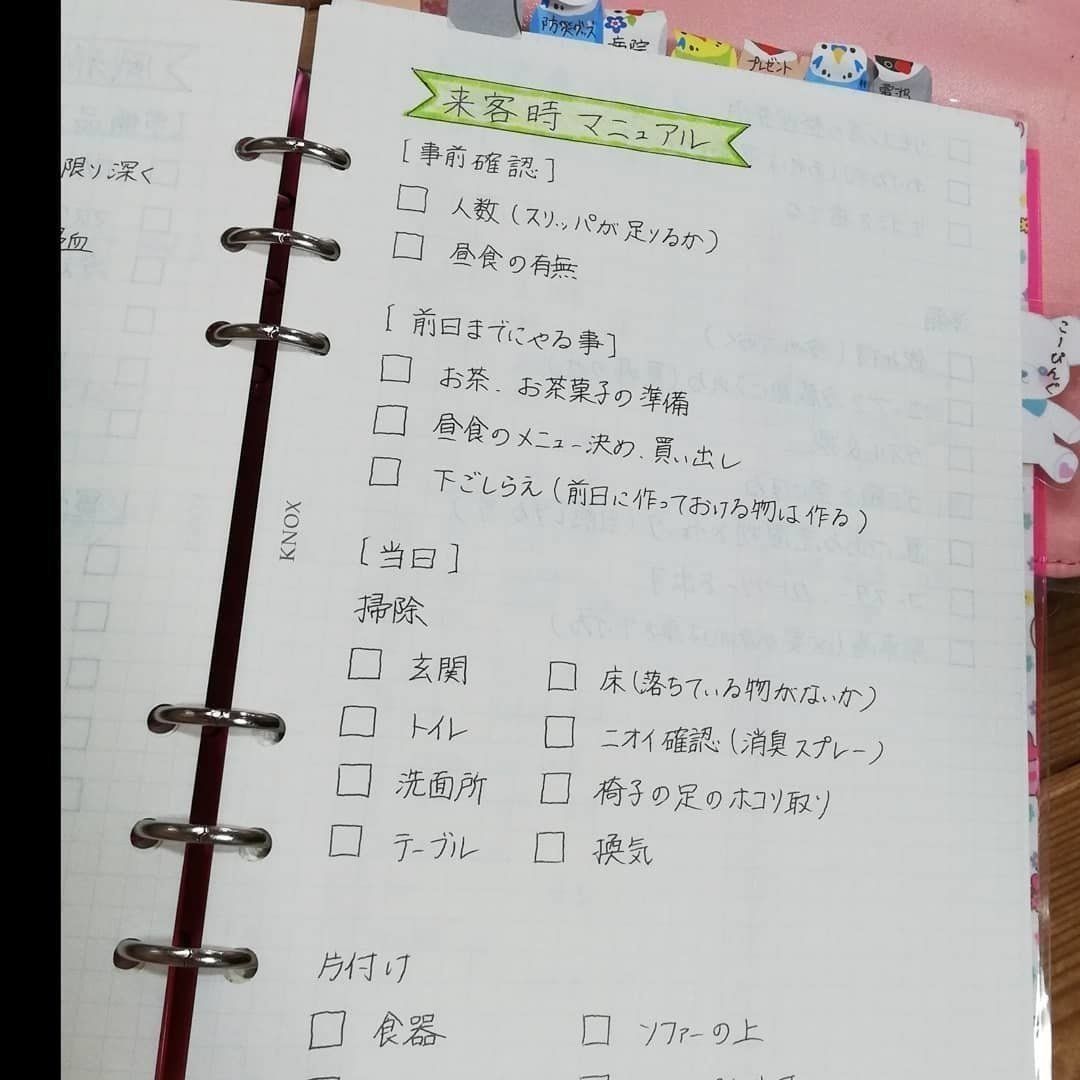 防災グッズ
病院
プレゼント
電池
こーぴんぐ
限り深く
来客時マニュアル
[事前確認]
□ 人数(スリッパが足りるか)
□ 昼食の有無
[前日までにやる事]
□ お茶、お茶菓子の準備
□ 昼食のメニュー決め、買い出し
□ 下ごしらえ(前日に作っておける物は作る)
KNOX
[当日]
掃除
□ 玄関 □ 床(落ちている物がないか)
□ トイレ □ ニオイ確認(消臭スプレー)
□ 洗面所 □ 椅子の足のホコリ取り
□ テーブル □ 換気
片付け
□ 食器 □ ソファーの上